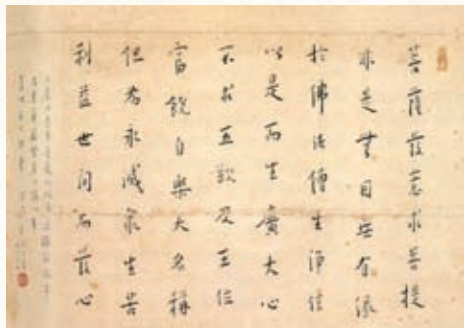 菩薩發意求菩提
非是無因無有緣
於佛法僧生淨信
以是而生廣大心
不求五欲及王位
富饒自樂大名稱
但為永滅眾生苦
利益世間而發心